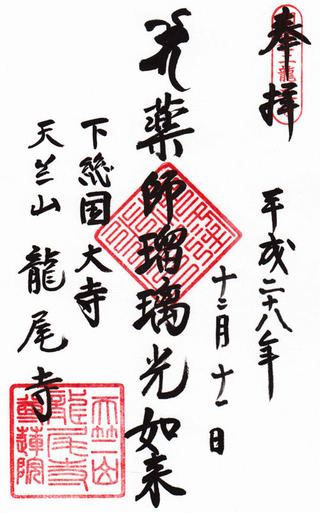 奉拝
平成二十八年
十二月十一日
薬師瑠璃光如来
下総国 大寺
天竺山 龍尾寺
天竺山
龍尾寺
尊蓮院